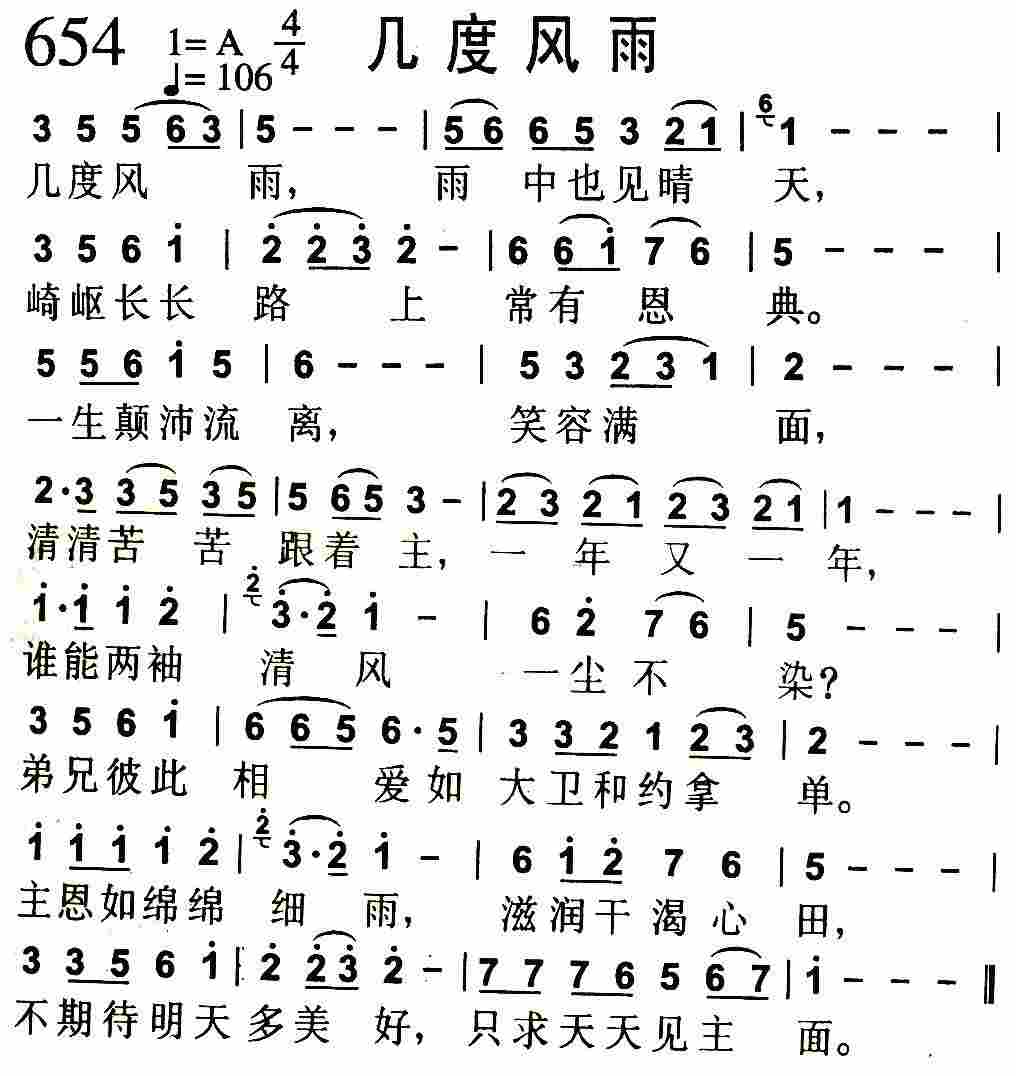 654 1=A 4/4 几度风雨
♩=106
3 5 5 6 3 | 5 - - - | 5 6 6 5 3 2 1 | 6 1 - - - |
几度风 雨, 雨 中也见晴 天,
3 5 6 i | 2̇ 2̇ 3̇ 2̇ - | 6 6 i 7 6 | 5 - - - |
崎岖长长 路 上 常有 恩 典。
5 5 6 i 5 | 6 - - - | 5 3 2 3 1 | 2 - - - |
一生颠沛流 离, 笑容满 面,
2·3 3 5 3 5 | 5 6 5 3 - | 2 3 2 1 2 3 2 1 | 1 - - - |
清清苦 苦 跟着 主, 一 年 又 一 年,
i·i i 2̇ | 2̇ 3̇·2̇ i - | 6 2̇ 7 6 | 5 - - - |
谁能两袖 清 风 一尘不 染?
3 5 6 i | 6 6 5 6·5 | 3 3 2 1 2 3 | 2 - - - |
弟兄彼此 相 爱如 大卫和约拿 单。
i i i i 2̇ | 2̇ 3̇·2̇ i - | 6 i 2̇ 7 6 | 5 - - - |
主恩如绵绵 细 雨, 滋润干渴心 田,
3 3 5 6 i | 2̇ 2̇ 3̇ 2̇ - | 7 7 7 6 5 6 7 | i - - - ‖
不期待明天多美 好, 只求天天见主 面。